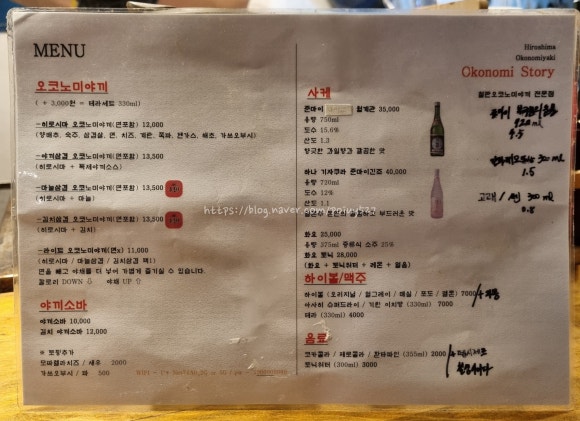 MENU
오코노미야끼
( + 3,000원 = 테라세트 330ml)
-히로시마 오코노미야끼(면포함) 12,000
(양배추, 숙주, 삼겹살, 면, 치즈, 계란, 쪽파, 텐가스, 해초, 가쓰오부시)
-야끼삼겹 오코노미야끼(면포함) 13,500
(히로시마 + 특제야끼소스)
-마늘삼겹 오코노미야끼(면포함) 13,500
(히로시마 + 마늘)
-김치삼겹 오코노미야끼(면포함) 13,500
(히로시마 + 김치)
-라이트 오코노미야끼(면x) 11,000
(히로시마 / 마늘삼겹 / 김치삼겹 택1)
면을 빼고 야채를 더 넣어 가볍게 즐기실 수 있습니다.
칼로리 DOWN ↓ 야채 UP ↑
야끼소바
야끼소바 10,000
김치 야끼소바 12,000
※ 토핑추가
모짜렐라치즈 / 새우 2000
가쓰오부시 / 파 500
Hiroshima
Okonomiyaki
Okonomi Story
일본오코노미야끼 전문점
사케
준마이 월계관 35,000
용량 750ml
도수 15.6%
산도 1.3
향긋한 과일향과 깔끔한 맛
하나 기자쿠라 준마이긴죠 40,000
용량 720ml
도수 12%
산도 1.1
부드러운 맛
화요 35,000
용량 375ml 증류식 소주 25%
화요 토닉 28,000
(화요 + 토닉워터 + 레몬 + 얼음)
하이볼/맥주
하이볼 (오리지널 / 얼그레이 / 매실 / 포도 / 레몬) 7000
아사히 슈퍼드라이 / 기린 이치방 (330ml) 7000
테라 (330ml) 4000
음료
코카콜라 / 제로콜라 / 환타파인 (355ml) 2000
토닉워터 (300ml) 3000
300 ml
1.5